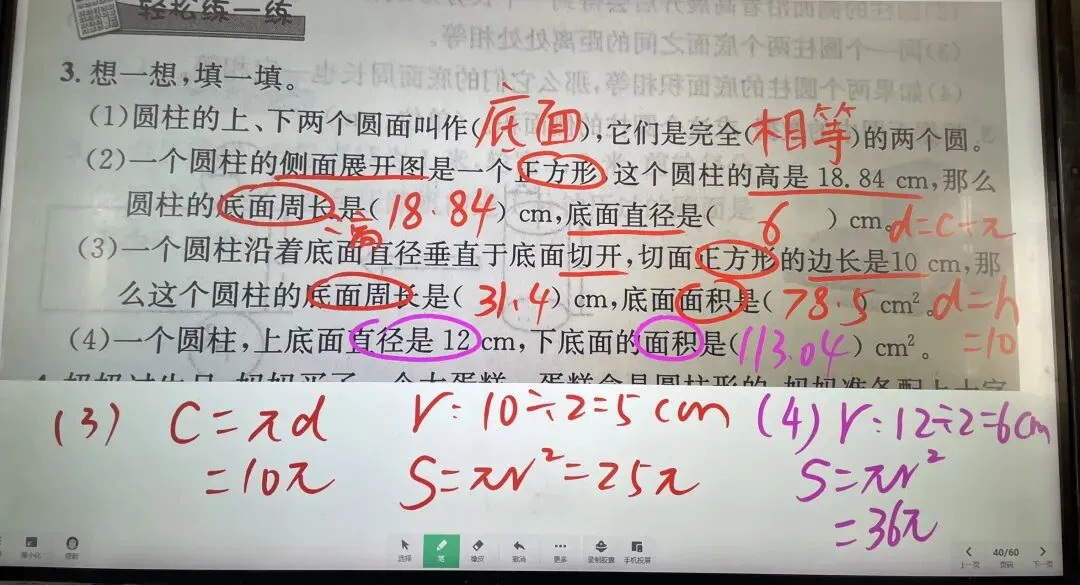 轻松练一练
3. 想一想,填一填。
(1)圆柱的上、下两个圆面叫作(底面),它们是完全(相等)的两个圆。
(2)一个圆柱的侧面展开图是一个正方形,这个圆柱的高是 18.84 cm,那么
圆柱的底面周长是(18.84) cm,底面直径是( 6 ) cm。d=C÷π
=高
(3)一个圆柱沿着底面直径垂直于底面切开,切面正方形的边长是10 cm,那
么这个圆柱的底面周长是(31.4) cm,底面面积是(78.5) cm²。d=h
=10
(4)一个圆柱,上底面直径是 12 cm,下底面的面积是(113.04) cm²。
(3) C=πd r:10÷2=5cm (4) r:12÷2=6cm
=10π S=πr²=25π S=πr²
=36π
最小化 选择 笔 橡皮 撤消 更多 录制胶囊 手机投屏 上一页 40/60 页码 下一页